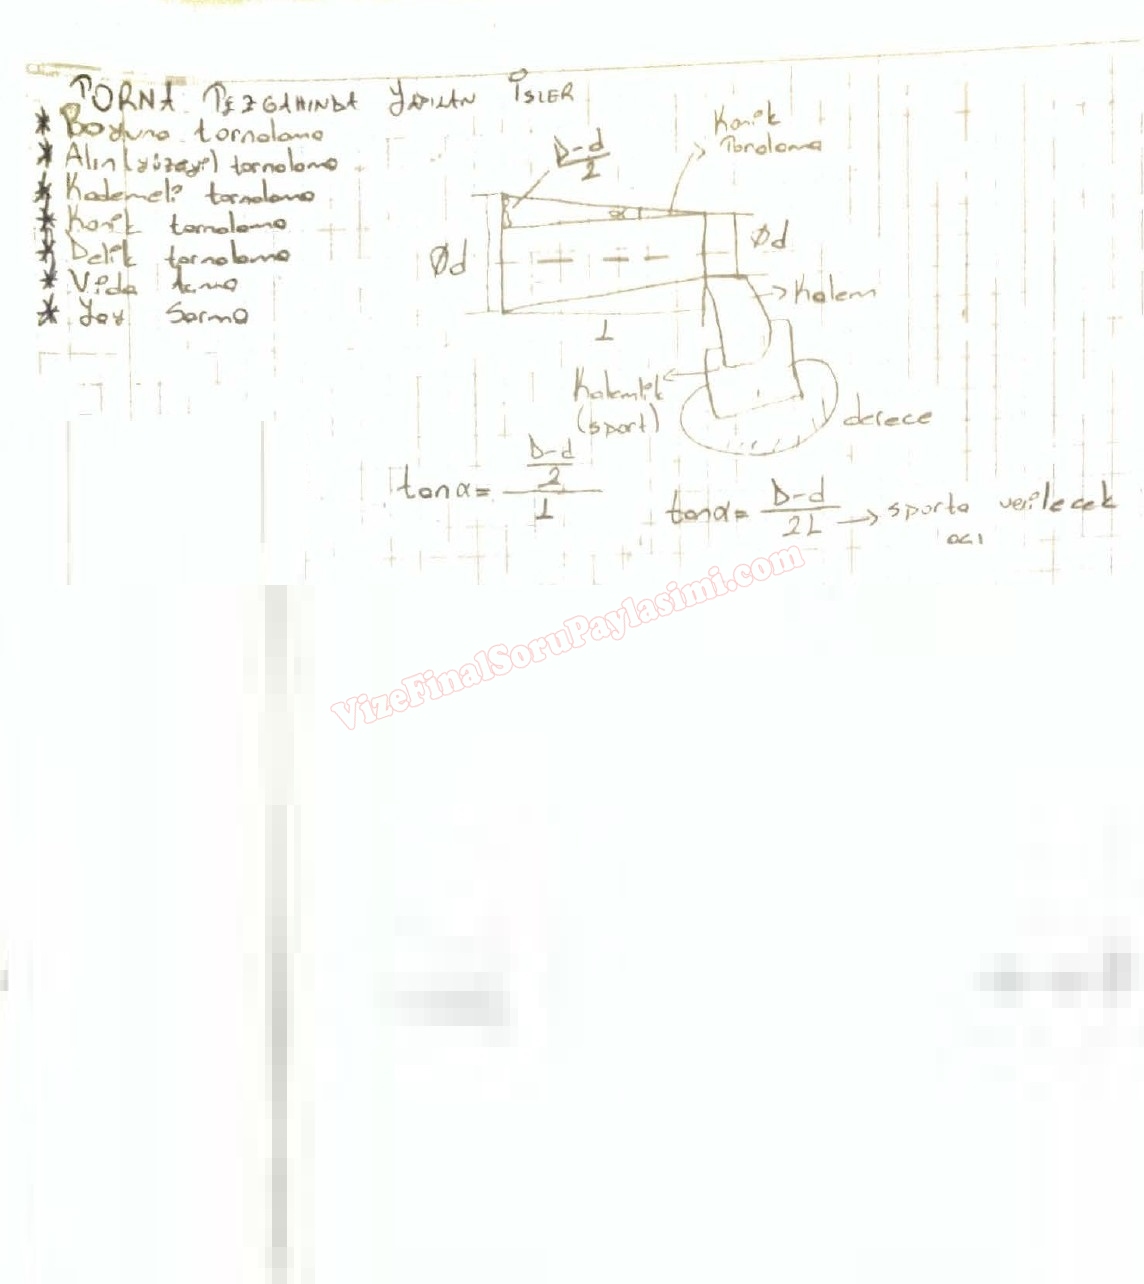 TORNA TEZGAHINDA YAPILAN İŞLER
* Boyuna tornalama
* Alın (yüzeyi) tornalama
* Kademeli tornalama
* Konik tornalama
* Delik tornalama
* Vida açma
* Yay Sarma
D-d
2
Konik
Tornalama
α
Ød
Ød
L
Kalem
Kalemlik
(sport)
derece
tanα = D-d
2
L
tanα = D-d
2L
→ sporta verilecek
açı
VizeFinalSoruPaylasimi.com